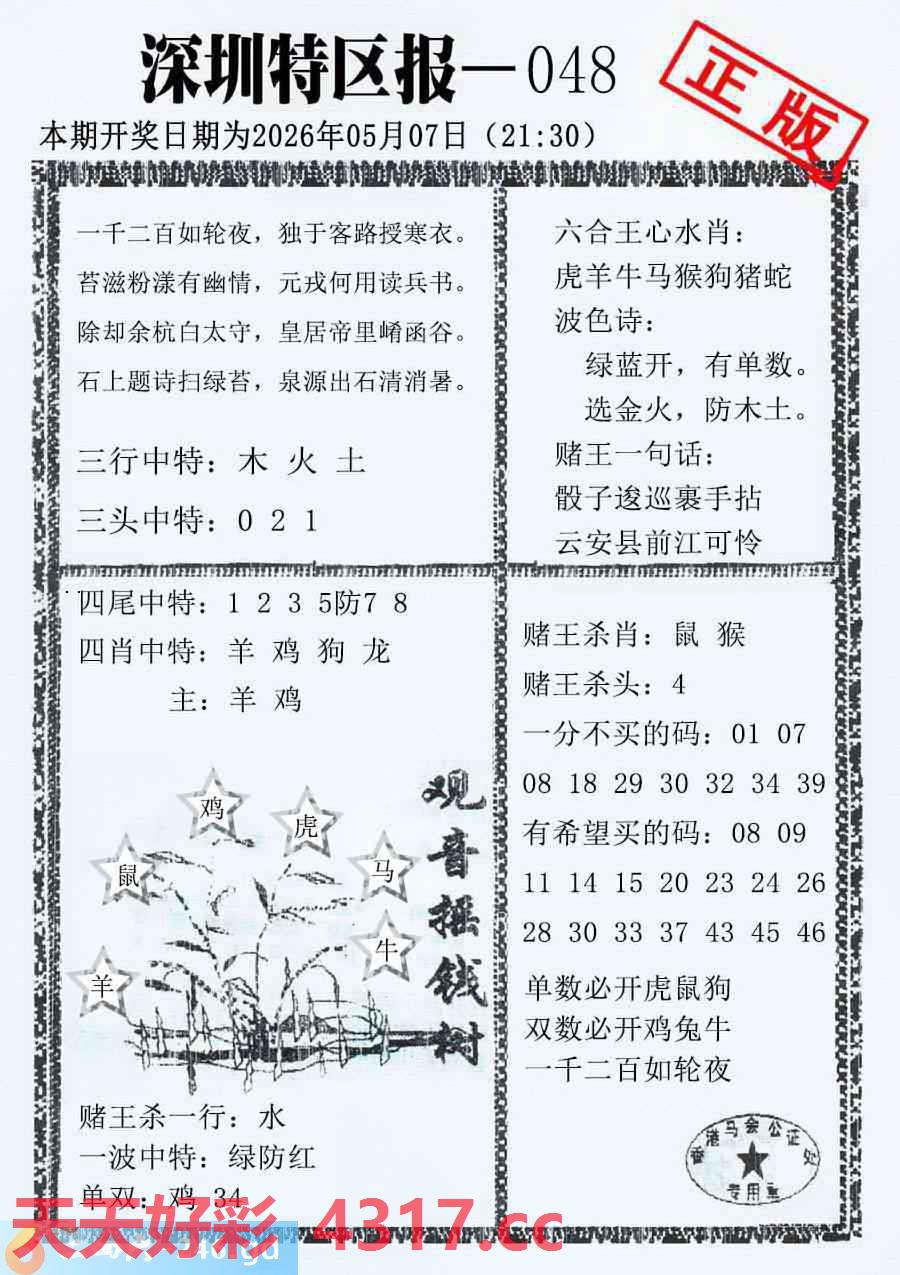 深圳特区报—048
正版
本期开奖日期为2026年05月07日（21:30）
一千二百如轮夜，独于客路授寒衣。
苔滋粉漾有幽情，元戎何用读兵书。
除却余杭白太守，皇居帝里崤函谷。
石上题诗扫绿苔，泉源出石清消暑。
三行中特：木 火 土
三头中特：0 2 1
六合王心水肖：
虎羊牛马猴狗猪蛇
波色诗：
绿蓝开，有单数。
选金火，防木土。
赌王一句话：
骰子逡巡裹手拈
云安县前江可怜
四尾中特：1 2 3 5防7 8
四肖中特：羊 鸡 狗 龙
主：羊 鸡
鸡
虎
鼠
马
牛
羊
观音摇钱树
赌王杀一行：水
一波中特：绿防红
单双：鸡 34
赌王杀肖：鼠 猴
赌王杀头：4
一分不买的码：01 07
08 18 29 30 32 34 39
有希望买的码：08 09
11 14 15 20 23 24 26
28 30 33 37 43 45 46
单数必开虎鼠狗
双数必开鸡兔牛
一千二百如轮夜
香港马会公证处
专用章
天天好彩 4317.cc